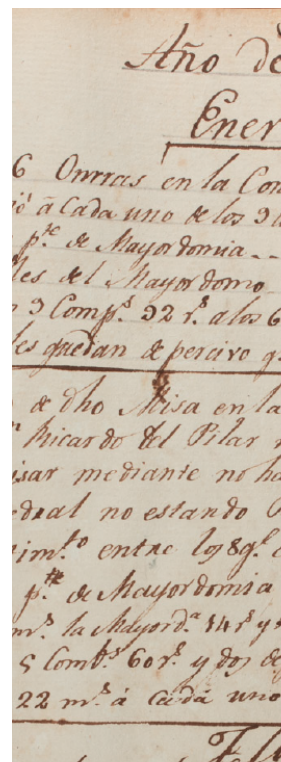 Año de
Ener
6 Onrras en la Con
ió á Cada uno de los 9
p.te de Mayordomia --
les del Mayordomo
9 Comp.s 32 r.s a los 6
les quedan de percivo q
de dho Misa en la
Ricardo del Pilar
isar mediante no ha
edral no estando
im.to entre los 8 q.e
p.te de Mayordomia
m.s la Mayord.a 14 r.s y
5 Comp.s 60 r.s y dos de
22 m.s á Cada uno